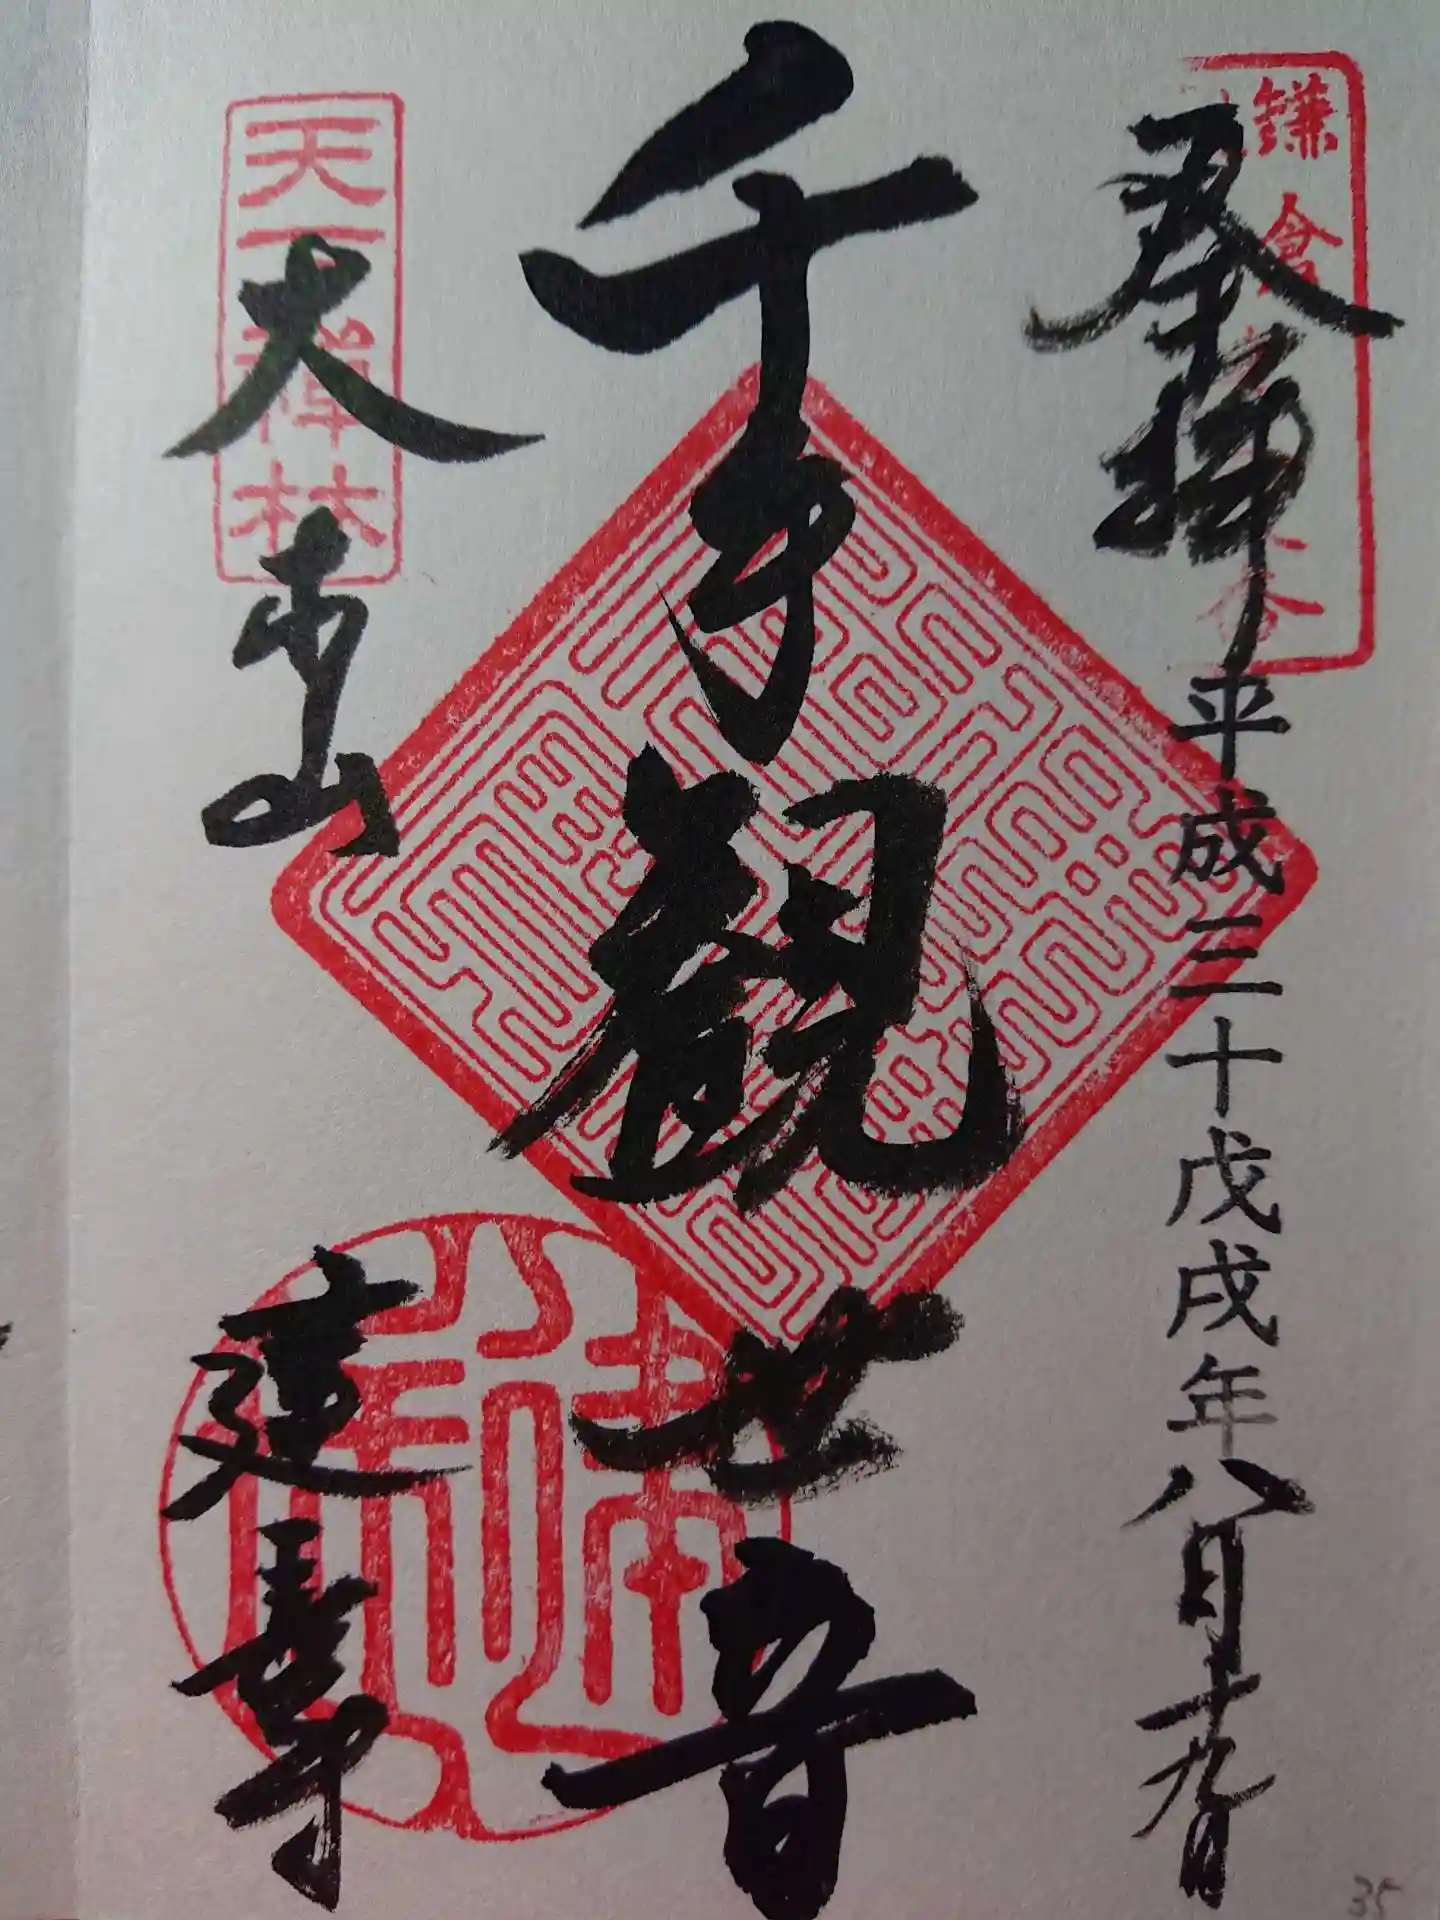 鎌倉
奉拝 平成三十戊戌年八月十九日
千手観世音
天下禅林
大本山 建長寺
35